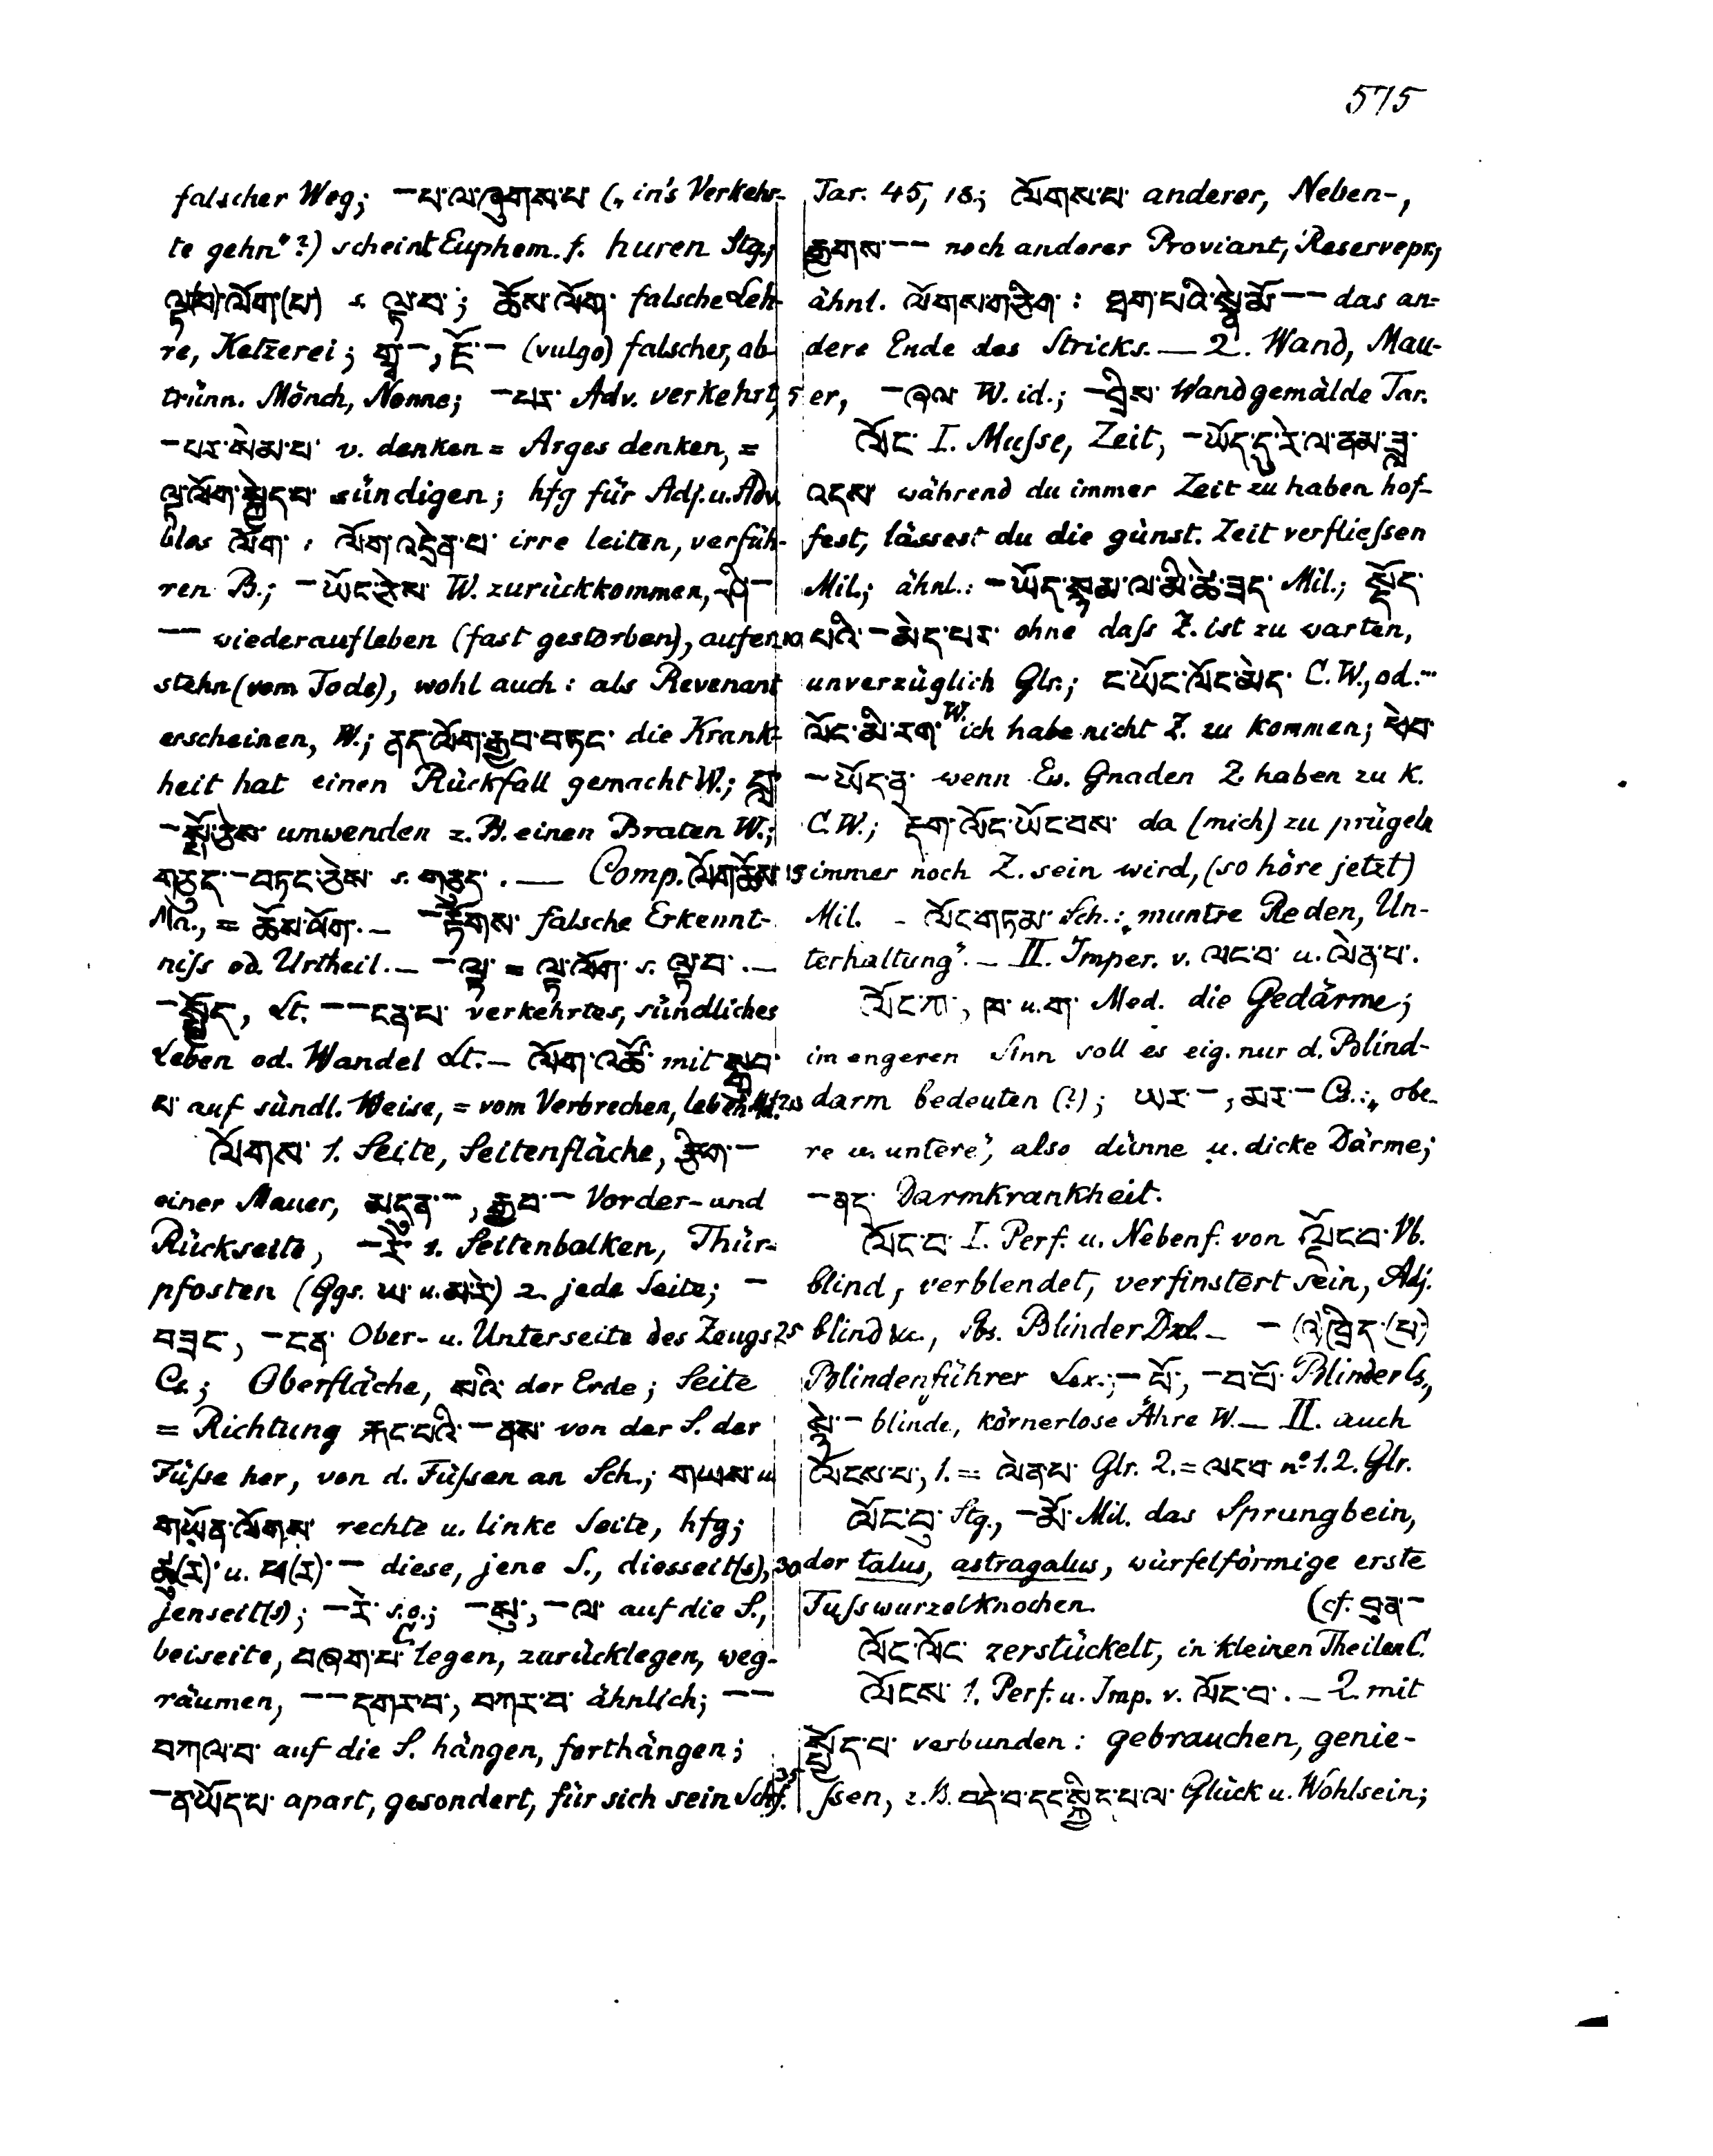 575
falscher Weg; —པ་ལ་ཞུགས་པ („in's Verkehr-
te gehn“?) scheint Euphem. f. huren Stg.;
ལྟ(བ)་ལོག་(པ) s. ལྟ་བ་; ཆོས་ལོག་ falsche Leh-
re, Ketzerei; གྲྭ་—, ཇོ་— (vulgo) falscher, ab-
trünn. Mönch, Nonne; —པར་ Adv. verkehrt,
—པར་སེམ་པ་ v. denken = Arges denken, =
ལྟ་ལོག་སྐྱེད་པ་ sündigen; hfg für Adj. u. Adv.
blos ལོག་: ལོག་འདྲེན་པ་ irre leiten, verfüh-
ren B.; —ཡོང་ཅེས་ W. zurückkommen, ཤི་—
—— wiederaufleben (fast gestorben), aufer-
stehn (vom Tode), wohl auch: als Revenant
erscheinen, W.; ནད་ལོག་རྒྱབ་བཏང་ die Krank-
heit hat einen Rückfall gemacht W.;
—སློ་ཅེས་ umwenden z. B. einen Braten W.;
གཅུད་—བཏང་ཅེས་ s. གཅུད་. — Comp. ལོག་ཆོས་
Mil., = ཆོས་ལོག་. — —རྟོགས་ falsche Erkennt-
niss od. Urtheil. — —ལྟ་ = ལྟ་ལོག་ s. ལྟ་བ་. —
—སྤྱོད, Lt. ——ངན་པ་ verkehrtes, sündliches
Leben od. Wandel Lt. — ལོག་འཚོ་ mit སྒྲུབ་
པ་ auf sündl. Weise, = vom Verbrechen, leben
ལོགས་ 1. Seite, Seitenfläche, རྩིག་—
einer Mauer, མདུན་—, རྒྱབ་— Vorder- und
Rückseite, —རེ་ 1. Seitenbalken, Thür-
pfosten (Ggs. ཡ་ u. མ་རེ་) 2. jede Seite; —
བཟང, —ངན་ Ober- u. Unterseite des Zeugs
Cs.; Oberfläche, སའི་ der Erde; Seite
= Richtung རྐང་པའི་—ནས་ von der S. der
Füsse her, von d. Füssen an Sch.; གཡས་ u.
གཡོན་ལོགས་ rechte u. linke Seite, hfg;
ཚུ(ར)་ u. ཕ(ར)་— diese, jene S., diesseit(s),
jenseit(s); —རེ་ s.o.; —སུ་, —ལ་ auf die S.,
beiseite, བཞག་པ་ legen, zurücklegen, weg-
räumen, ——དགར་བ་, བཀར་བ་ ähnlich; ——
བཀལ་བ་ auf die S. hängen, forthängen;
—ན་ཡོད་པ་ apart, gesondert, für sich sein Schf.
Tar. 45, 18; ལོགས་པ་ anderer, Neben-,
རྒྱགས་—— noch anderer Proviant, Reservepr.,
ähnl. ལོགས་གཅིག་: ཐག་པའི་སྣེ་མོ་—— das an-
dere Ende des Stricks. — 2. Wand, Mau-
5 er, —ཞལ་ W. id.; —བྲིས་ Wandgemälde Tar.
ལོང་ I. Musse, Zeit, —ཡོད་དུ་རེ་ལ་ནམ་ཟླ་
འདས་ während du immer Zeit zu haben hof-
fest, lässest du die günst. Zeit verfliessen
Mil.; ähnl.: —ཡོད་སྙམ་ལ་མི་ཚེ་ཟད་ Mil.; སྡོད་
10 པའི་—མེད་པར་ ohne dass Z. ist zu warten,
unverzüglich Glr.; ང་ཡོང་ལོང་མེད་ C. W., od. ...
ལོང་མི་རག་ W. ich habe nicht Z. zu kommen; ཕེབ་
—ཡོད་ན་ wenn Ew. Gnaden Z. haben zu k.
C. W.; རྡེག་ལོང་ཡོང་བས་ da (mich) zu prügeln
15 immer noch Z. sein wird, (so höre jetzt)
Mil. — ལོང་གཏམ་ Sch.: „muntre Reden, Un-
terhaltung“. — II. Imper. v. ལང་བ་ u. ལེན་པ་.
ལོང་ཀ་, ཁ་ u. ག་ Med. die Gedärme;
im engeren Sinn soll es eig. nur d. Blind-
20 darm bedeuten (?); ཡར་—, མར་— Cs.: „obe-
re u. untere“, also dünne u. dicke Därme;
—ནད་ Darmkrankheit.
ལོང་བ་ I. Perf. u. Nebenf. von ལྡོང་བ་ Vb.
blind, verblendet, verfinstert sein, Adj.
25 blind &c., Sbs. Blinder Dzl. — —(འ)ཁྲིད་(པ་)
Blindenführer Lex.; —པོ་, —བ་པོ་ Blinder Cs.,
སྙེ་— blinde, körnerlose Ähre W. — II. auch
ལོངས་པ་, 1. = ལེན་པ་ Glr. 2. = ལང་བ་ no. 1. 2. Glr.
ལོང་བུ་ Stg., —མོ་ Mil. das Sprungbein,
30 der talus, astragalus, würfelförmige erste
Fusswurzelknochen. (cf. བྲུན་—
ལོང་ལོང་ zerstückelt, in kleinen Theilen C.
ལོངས་ 1. Perf. u. Imp. v. ལོང་བ་. — 2. mit
སྤྱོད་པ་ verbunden: gebrauchen, genie-
35 ssen, z. B. བདེ་བ་དང་སྐྱིད་པ་ལ་ Glück u. Wohlsein;